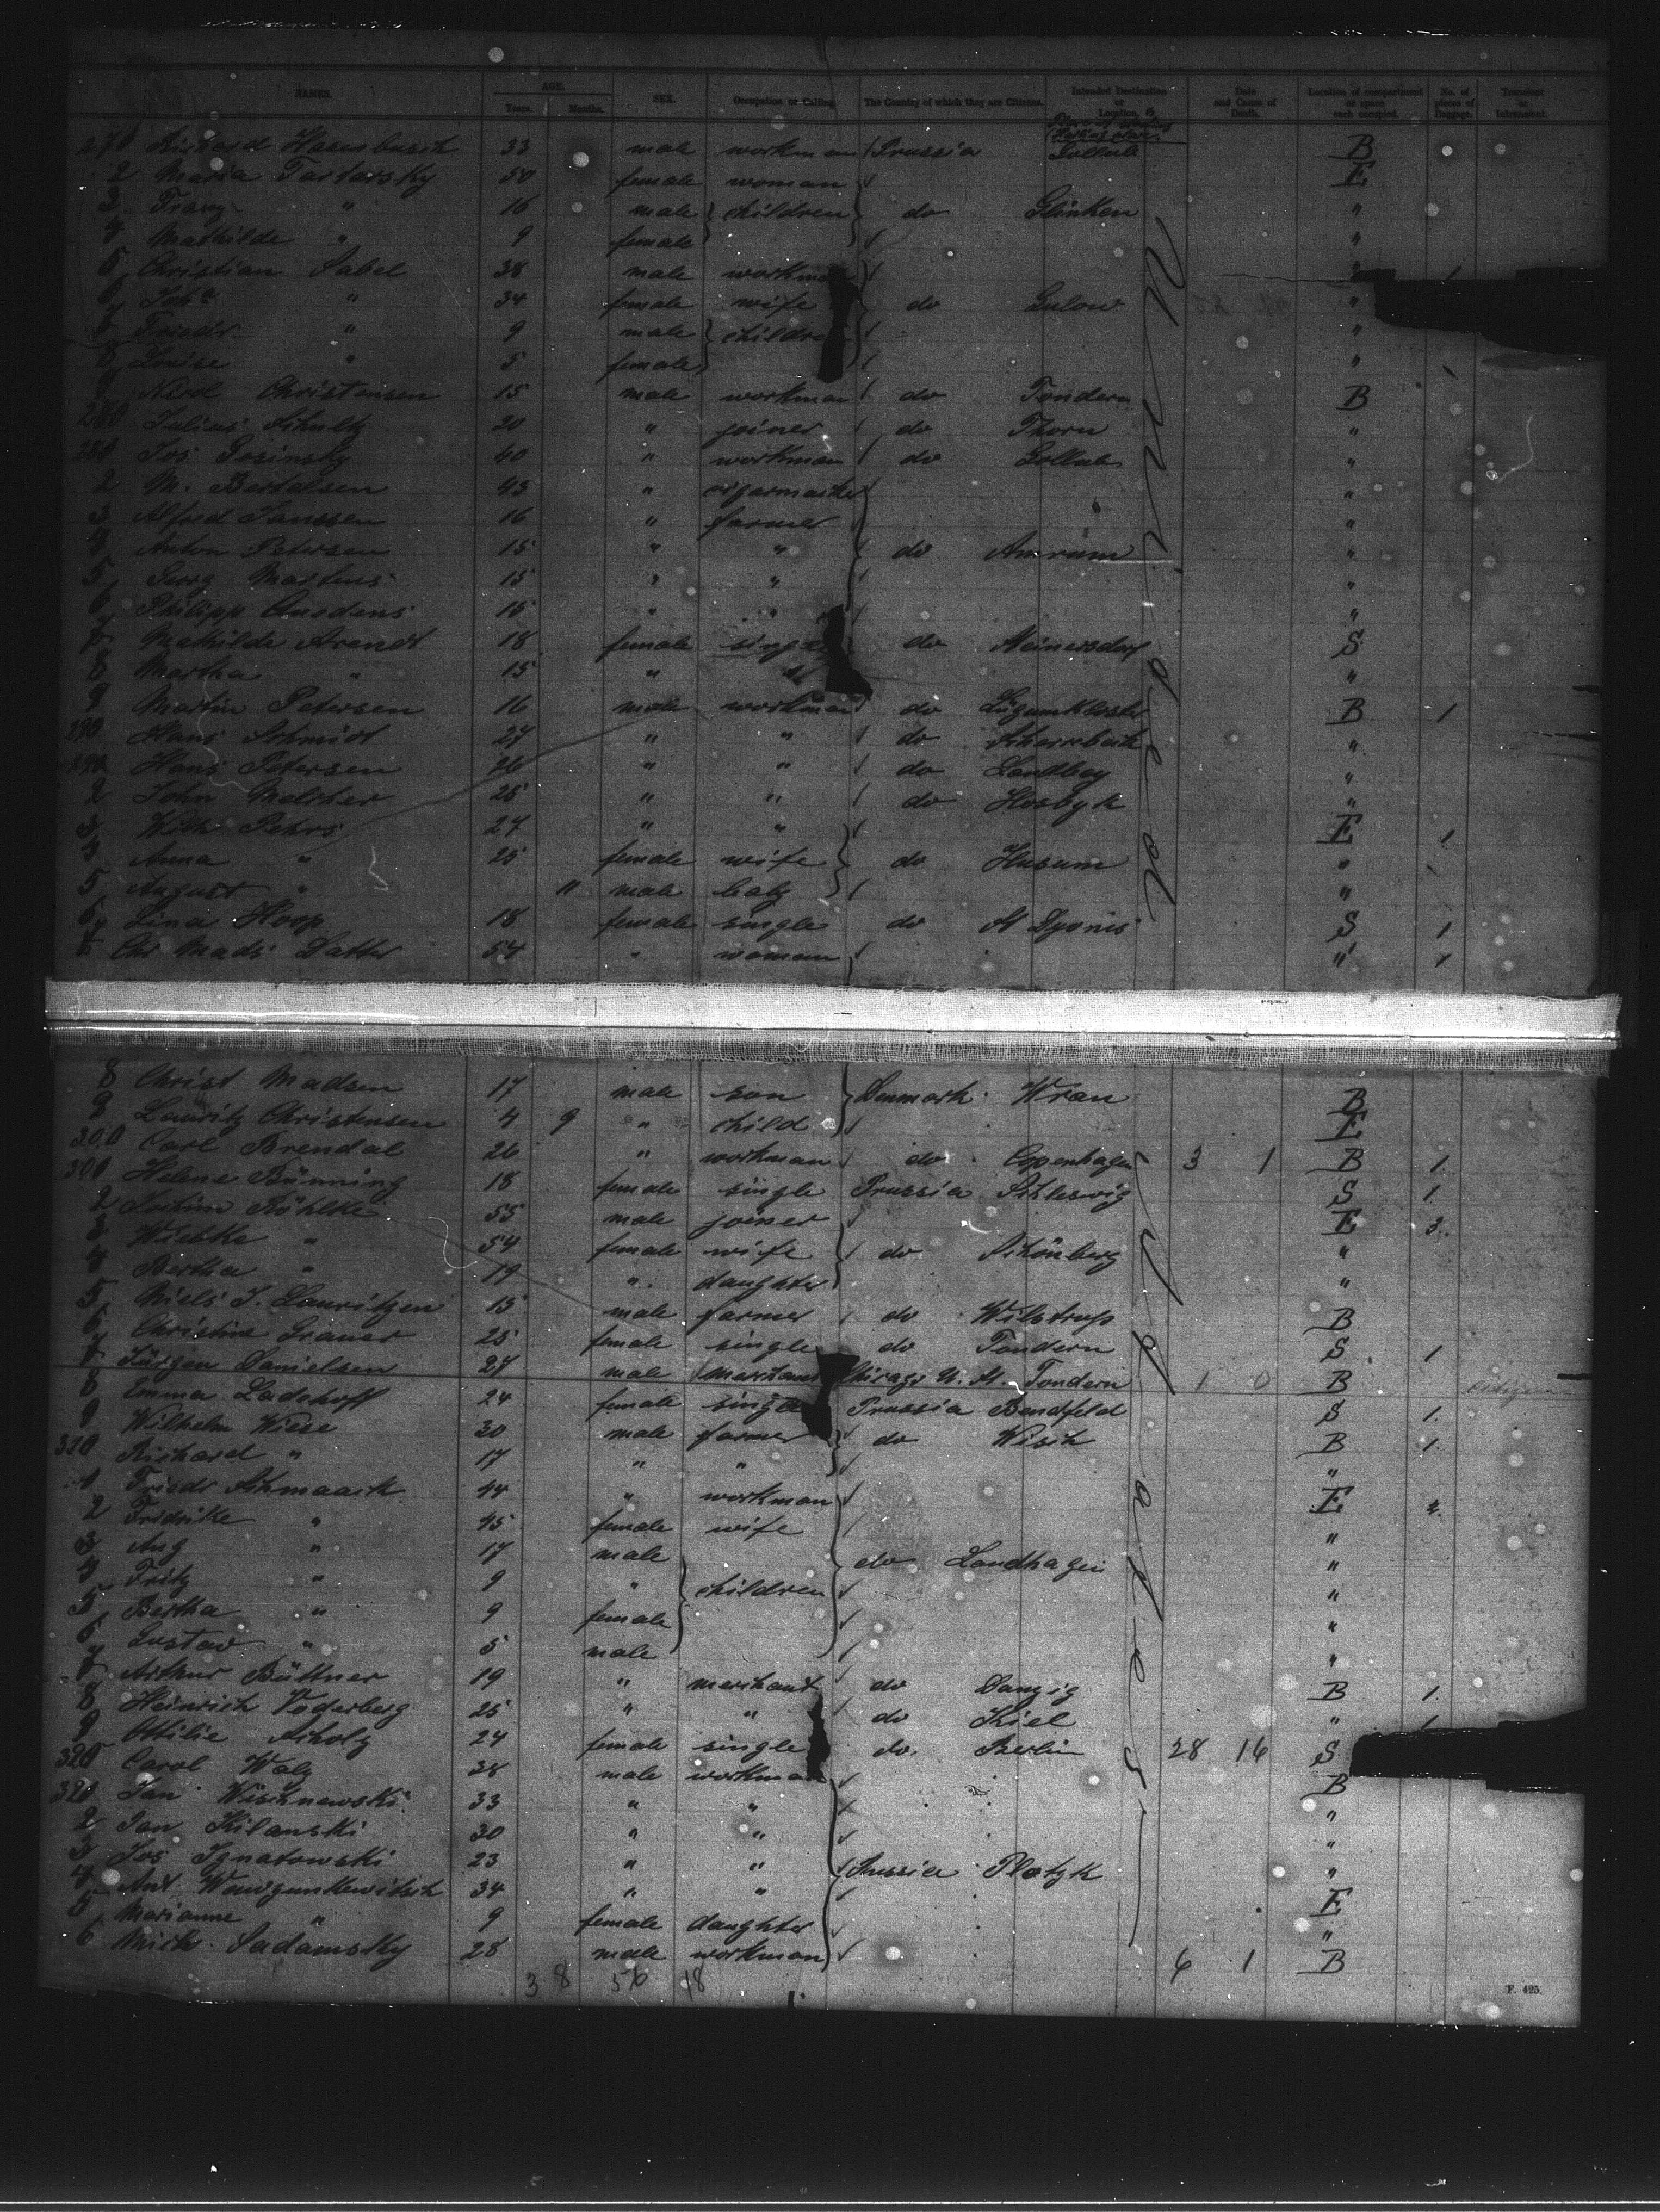 NAMES. AGE. SEX. Occupation or Calling. The Country of which they are Citizens. Intended Destination or Location, & Date and Cause of Death. Location of compartment or space each occupied. No. of pieces of Baggage. Transient or Intransient.
Years. Months.
Richard Hasenbusch 33 male workman Prussia Gollub B
2 Maria Tartarsky 50 female woman E
3 Franz " 16 male children do Glinken "
4 Mathilde " 9 female "
5 Christian Sabel 38 male workman " 1
6 Joh^a " 34 female wife do Gulow "
7 Friedr. " 9 male children "
8 Louise " 5 female "
9 Christensen 15 male workman do Tondern B
280 Julius Schultz 20 " joiner do Thorn "
281 Jos Gosinsky 40 " workman do Gollub "
2 M. Bertelsen 43 " "
3 Alfred Janssen 16 " farmer "
4 Anton Petersen 15 " " do Amrum "
5 Georg Martens 15 " " "
6 Philipp Quedens 15 " " "
7 Mathilde Arendt 18 female single do Heinersdorf S
8 Martha " 15 " "
9 Martin Petersen 16 male workman do Lügumkloster B 1
290 Hans Schmidt 27 " " do Scherrebeck "
291 Hans Petersen 26 " " do "
2 John Melcher 25 " " do "
3 Wilh. Pehrs 27 " " E 1
4 Anna " 25 female wife do Husum "
5 August " 11 male baby "
6 Lina Hoop 18 female single do St Dyonis S 1
7 Chr Mads Datter 54 " woman " 1
U S U l l
8 Christ. Madsen 17 male son Denmark Wran B
9 Lauritz Christensen 4 9 " child E
300 Carl Brendal 26 " workman do Copenhagen 3 1 B 1.
301 Helene Bünning 18 female single Prussia Schleswig S 1.
2 Jochim Röhlke 55 male joiner E 3.
3 Wiebke " 54 female wife do Schönberg "
4 Bertha " 19 " daughter "
5 Niels J. Lauritzen 15 male farmer do Wilstrup B
6 Christine Grauer 25 female single do Tondern S 1
7 Jürgen Danielsen 27 male merchant Chicago U. St. Tondern 1 0 B citizen
8 Emma Ladehoff 24 female single Prussia Bendfeld S 1.
9 Wilhelm Wiese 30 male farmer do Wisch B 1.
310 Richard " 17 " " "
1 Friedr Schmaack 44 " workman E 4.
2 Fridrike " 45 female wife "
3 Aug " 17 male do Landhagen "
4 Fritz " 9 " children "
5 Bertha " 9 female "
6 Gustav " 5 male "
7 Arthur Büttner 19 " merchant do Danzig B 1.
8 Heinrich Voderberg 25 " " do Kiel " 1.
9 Ottilie Scholz 24 female single do. Berlin 28 16 S
320 Carol Walz 38 male workman B
321 Jan Wischnewski. 33 " " "
2 Jan Kilanski 30 " " "
3 Jos Ignatowski 23 " " Russia Plotzk "
4 Ant 34 " " E
5 Marianne " 9 female daughter "
6 Mich. Sadamsky 28 male workman 6 1 B
3 8 18
F. 425.